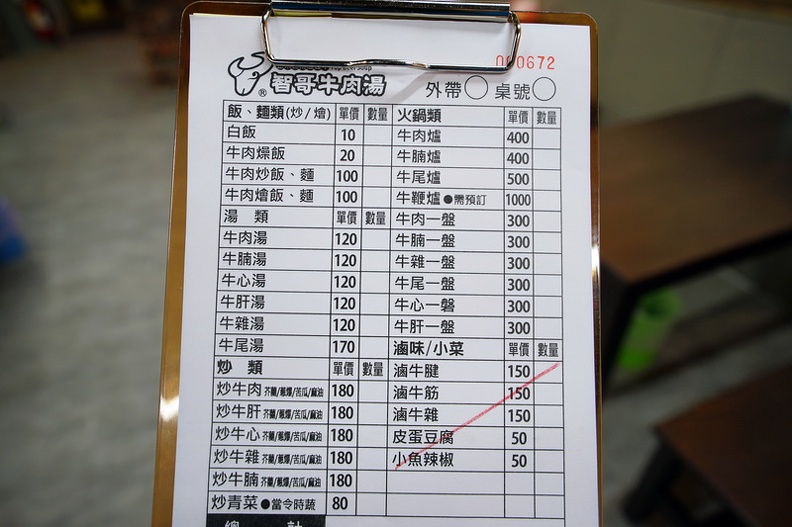 000672
智哥牛肉湯 ®
外帶 桌號
飯、麵類(炒/燴) 單價 數量
白飯 10
牛肉燥飯 20
牛肉炒飯、麵 100
牛肉燴飯、麵 100
湯 類 單價 數量
牛肉湯 120
牛腩湯 120
牛心湯 120
牛肝湯 120
牛雜湯 120
牛尾湯 170
炒 類 單價 數量
炒牛肉 芥蘭/蔥爆/苦瓜/麻油 180
炒牛肝 芥蘭/蔥爆/苦瓜/麻油 180
炒牛心 芥蘭/蔥爆/苦瓜/麻油 180
炒牛雜 芥蘭/蔥爆/苦瓜/麻油 180
炒牛腩 180
炒青菜 ●當令時蔬 80
總 計
火鍋類 單價 數量
牛肉爐 400
牛腩爐 400
牛尾爐 500
牛鞭爐 ●需預訂 1000
牛肉一盤 300
牛腩一盤 300
牛雜一盤 300
牛尾一盤 300
牛心一磐 300
牛肝一盤 300
滷味/小菜 單價 數量
滷牛腱 150
滷牛筋 150
滷牛雜 150
皮蛋豆腐 50
小魚辣椒 50